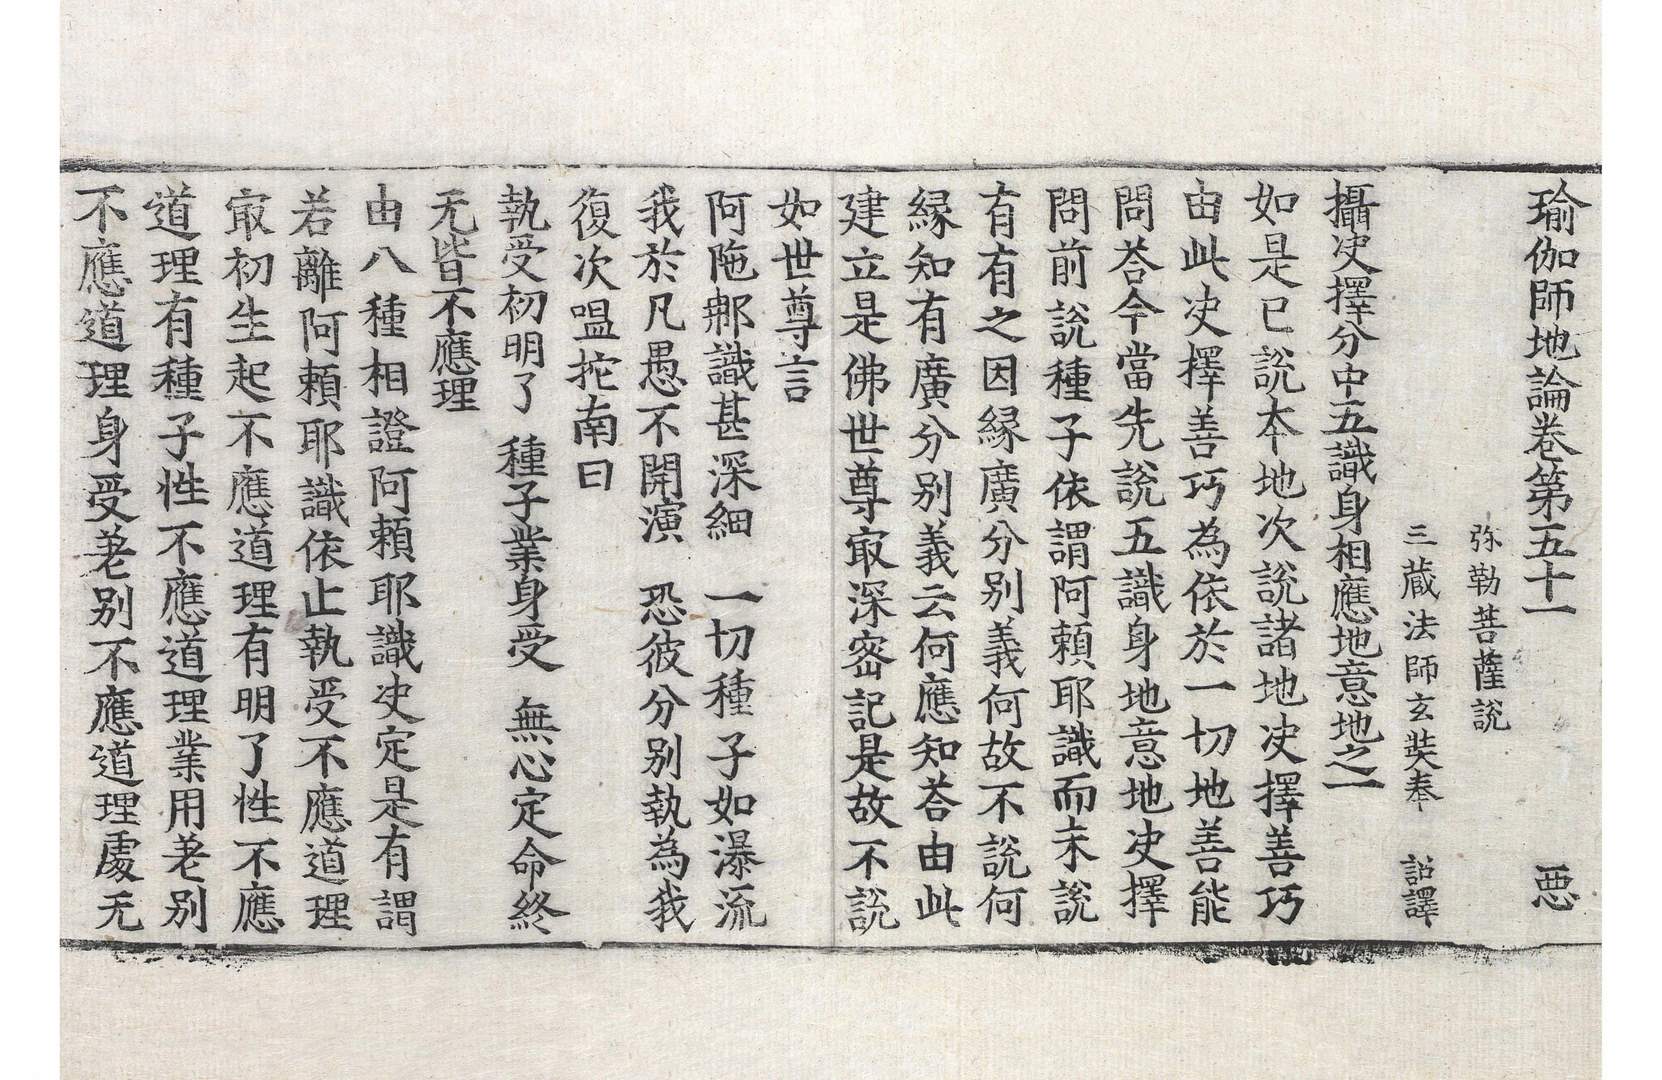 瑜伽師地論卷第五十一 惡
弥勒菩薩說
三藏法師玄奘奉 詔譯
攝决擇分中五識身相應地意地之一
如是已說本地次說諸地决擇善巧
由此决擇善巧為依於一切地善能
問荅今當先說五識身地意地决擇
問前說種子依謂阿賴耶識而未說
有有之因縁廣分别義何故不說何
縁知有廣分别義云何應知荅由此
建立是佛世尊㝡深密記是故不說
如世尊言
阿陁那識甚深細 一切種子如瀑流
我於凡愚不開演 恐彼分别執為我
復次嗢拕南曰
執受初明了 種子業身受 無心定命終
无皆不應理
由八種相證阿賴耶識决定是有謂
若離阿賴耶識依止執受不應道理
㝡初生起不應道理有明了性不應
道理有種子性不應道理業用差别
不應道理身受差别不應道理處无